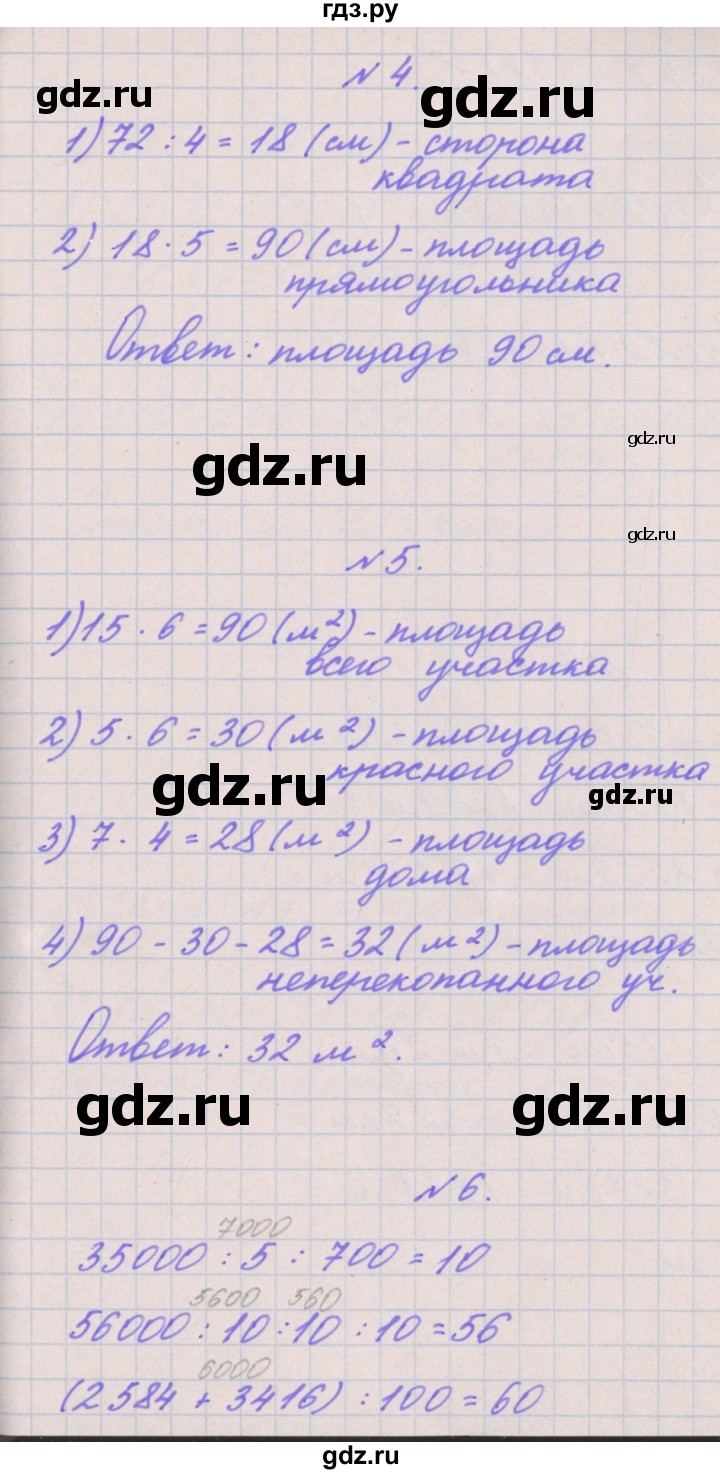 гдз.ру
№ 4.
gdz.ru
gdz.ru
1) 72 : 4 = 18 (см) - сторона
квадрата
2) 18 · 5 = 90 (см) - площадь
прямоугольника
Ответ: площадь 90 см.
gdz.ru
gdz.ru
gdz.ru
№ 5.
1) 15 · 6 = 90 (м²) - площадь
всего участка
2) 5 · 6 = 30 (м²) - площадь
красного участка
gdz.ru
gdz.ru
3) 7 · 4 = 28 (м²) - площадь
дома
4) 90 - 30 - 28 = 32 (м²) - площадь
неперекопанного уч.
Ответ: 32 м².
gdz.ru
gdz.ru
№ 6.
7000
35000 : 5 : 700 = 10
5600 560
56000 : 10 : 10 : 10 = 56
6000
(2584 + 3416) : 100 = 60
gdz.ru